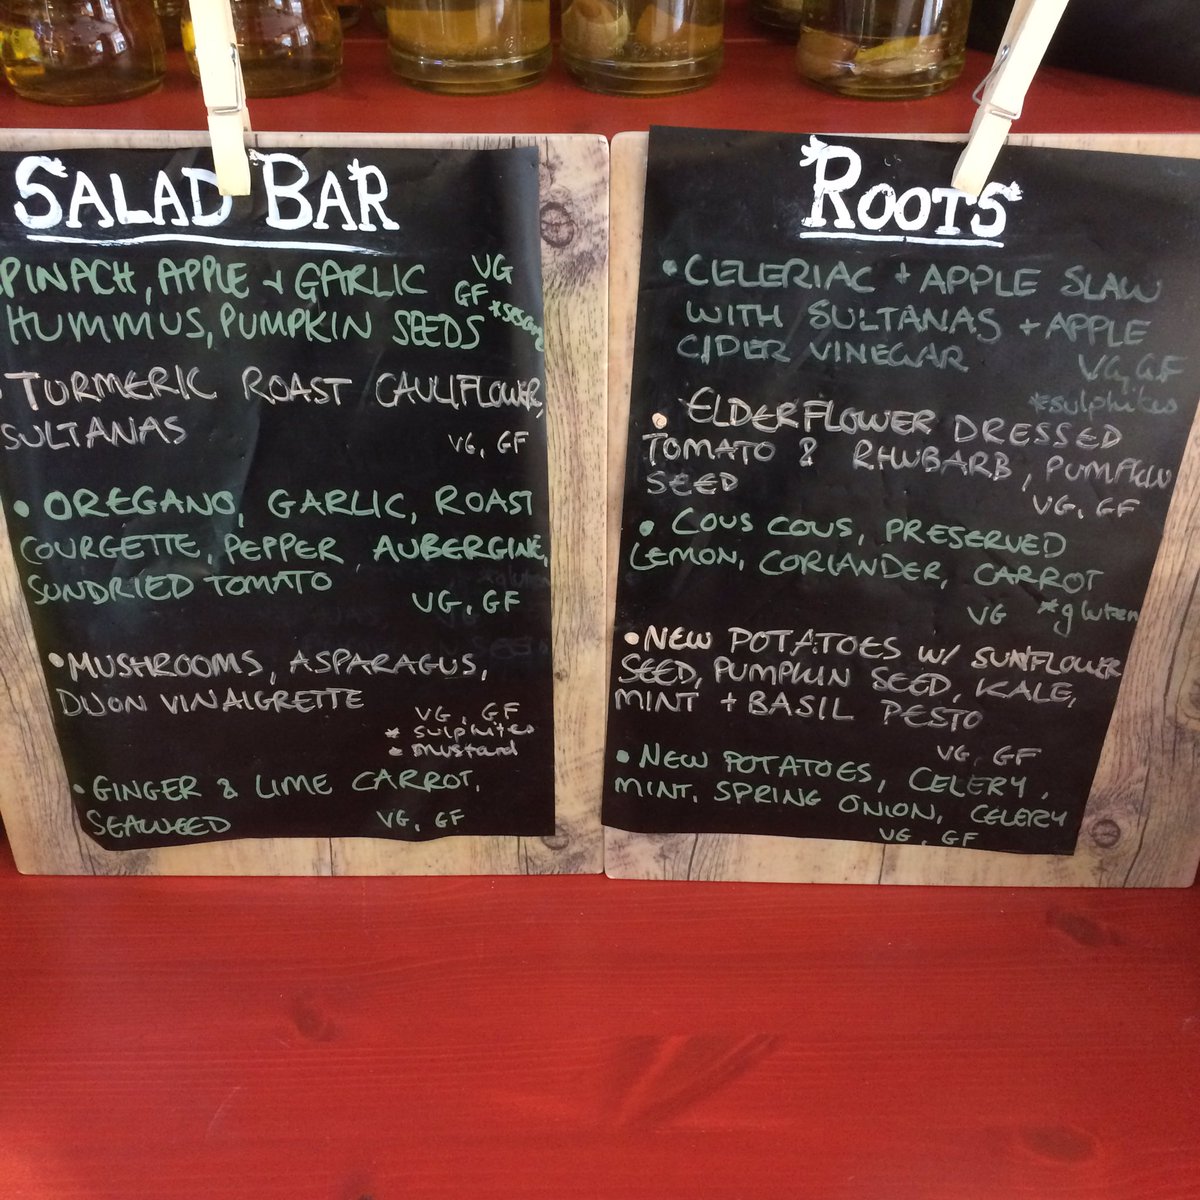 SALAD BAR
SPINACH, APPLE + GARLIC VG
HUMMUS, PUMPKIN SEEDS GF *sesame
TURMERIC ROAST CAULIFLOWER,
SULTANAS VG, GF
• OREGANO, GARLIC, ROAST
COURGETTE, PEPPER, AUBERGINE,
SUNDRIED TOMATO VG, GF
• MUSHROOMS, ASPARAGUS,
DIJON VINAIGRETTE VG, GF
* sulphites
• mustard
• GINGER & LIME CARROT,
SEAWEED VG, GF
ROOTS
• CELERIAC + APPLE SLAW
WITH SULTANAS + APPLE
CIDER VINEGAR VG, GF
*sulphites
• ELDERFLOWER DRESSED
TOMATO & RHUBARB, PUMPKIN
SEED VG, GF
• COUS COUS, PRESERVED
LEMON, CORIANDER, CARROT
VG *gluten
• NEW POTATOES W/ SUNFLOWER
SEED, PUMPKIN SEED, KALE,
MINT + BASIL PESTO
VG, GF
• NEW POTATOES, CELERY,
MINT, SPRING ONION, CELERY
VG, GF